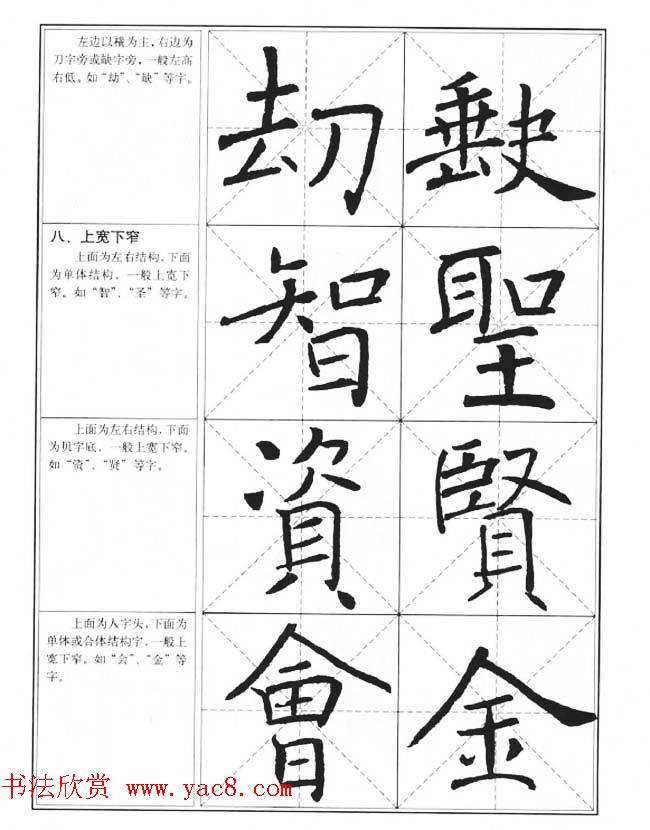 左边以横为主，右边为
刀字旁或缺字旁，一般左高
右低。如“劫”、“缺”等字。
刦
八、上宽下窄
上面为左右结构，下面
为单体结构，一般上宽下
窄。如“智”、“圣”等字。
智 聖
上面为左右结构，下面
为贝字底，一般上宽下窄。
如“资”、“贤”等字。
資 賢
上面为人字头，下面为
单体或合体结构字，一般上
宽下窄。如“会”、“金”等
字。
會 金
书法欣赏 www.yac8.com